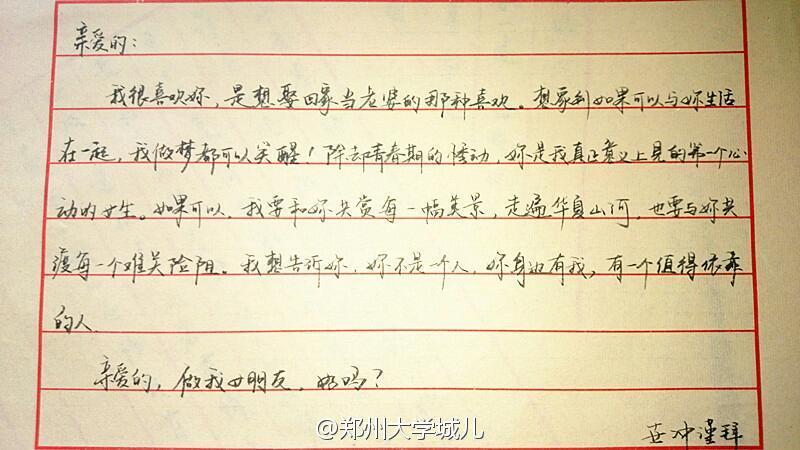 亲爱的：
我很喜欢妳，是想娶回家当老婆的那种喜欢。想象到如果可以与妳生活
在一起，我做梦都可以笑醒！除却青春期的悸动，妳是我真正意义上见的第一个心
动的女生。如果可以，我要和妳共赏每一幅美景，走遍华夏山河，也要与妳共
渡每一个难关险阻。我想告诉妳，妳不是一个人，妳身边有我，有一个值得依靠
的人.
亲爱的，做我女朋友，好吗？
冲谨拜
@郑州大学城儿